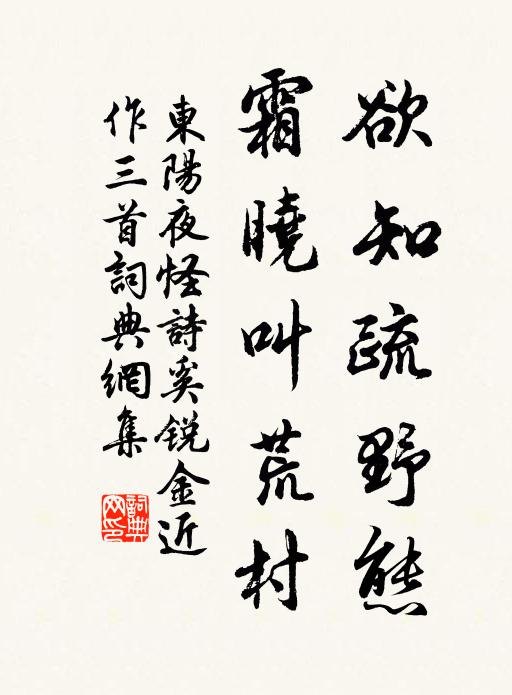 欲知疏野態
霜曉叫荒村
東陽夜怪詩奚銳金近
作三首詞典網集
詞典
网印